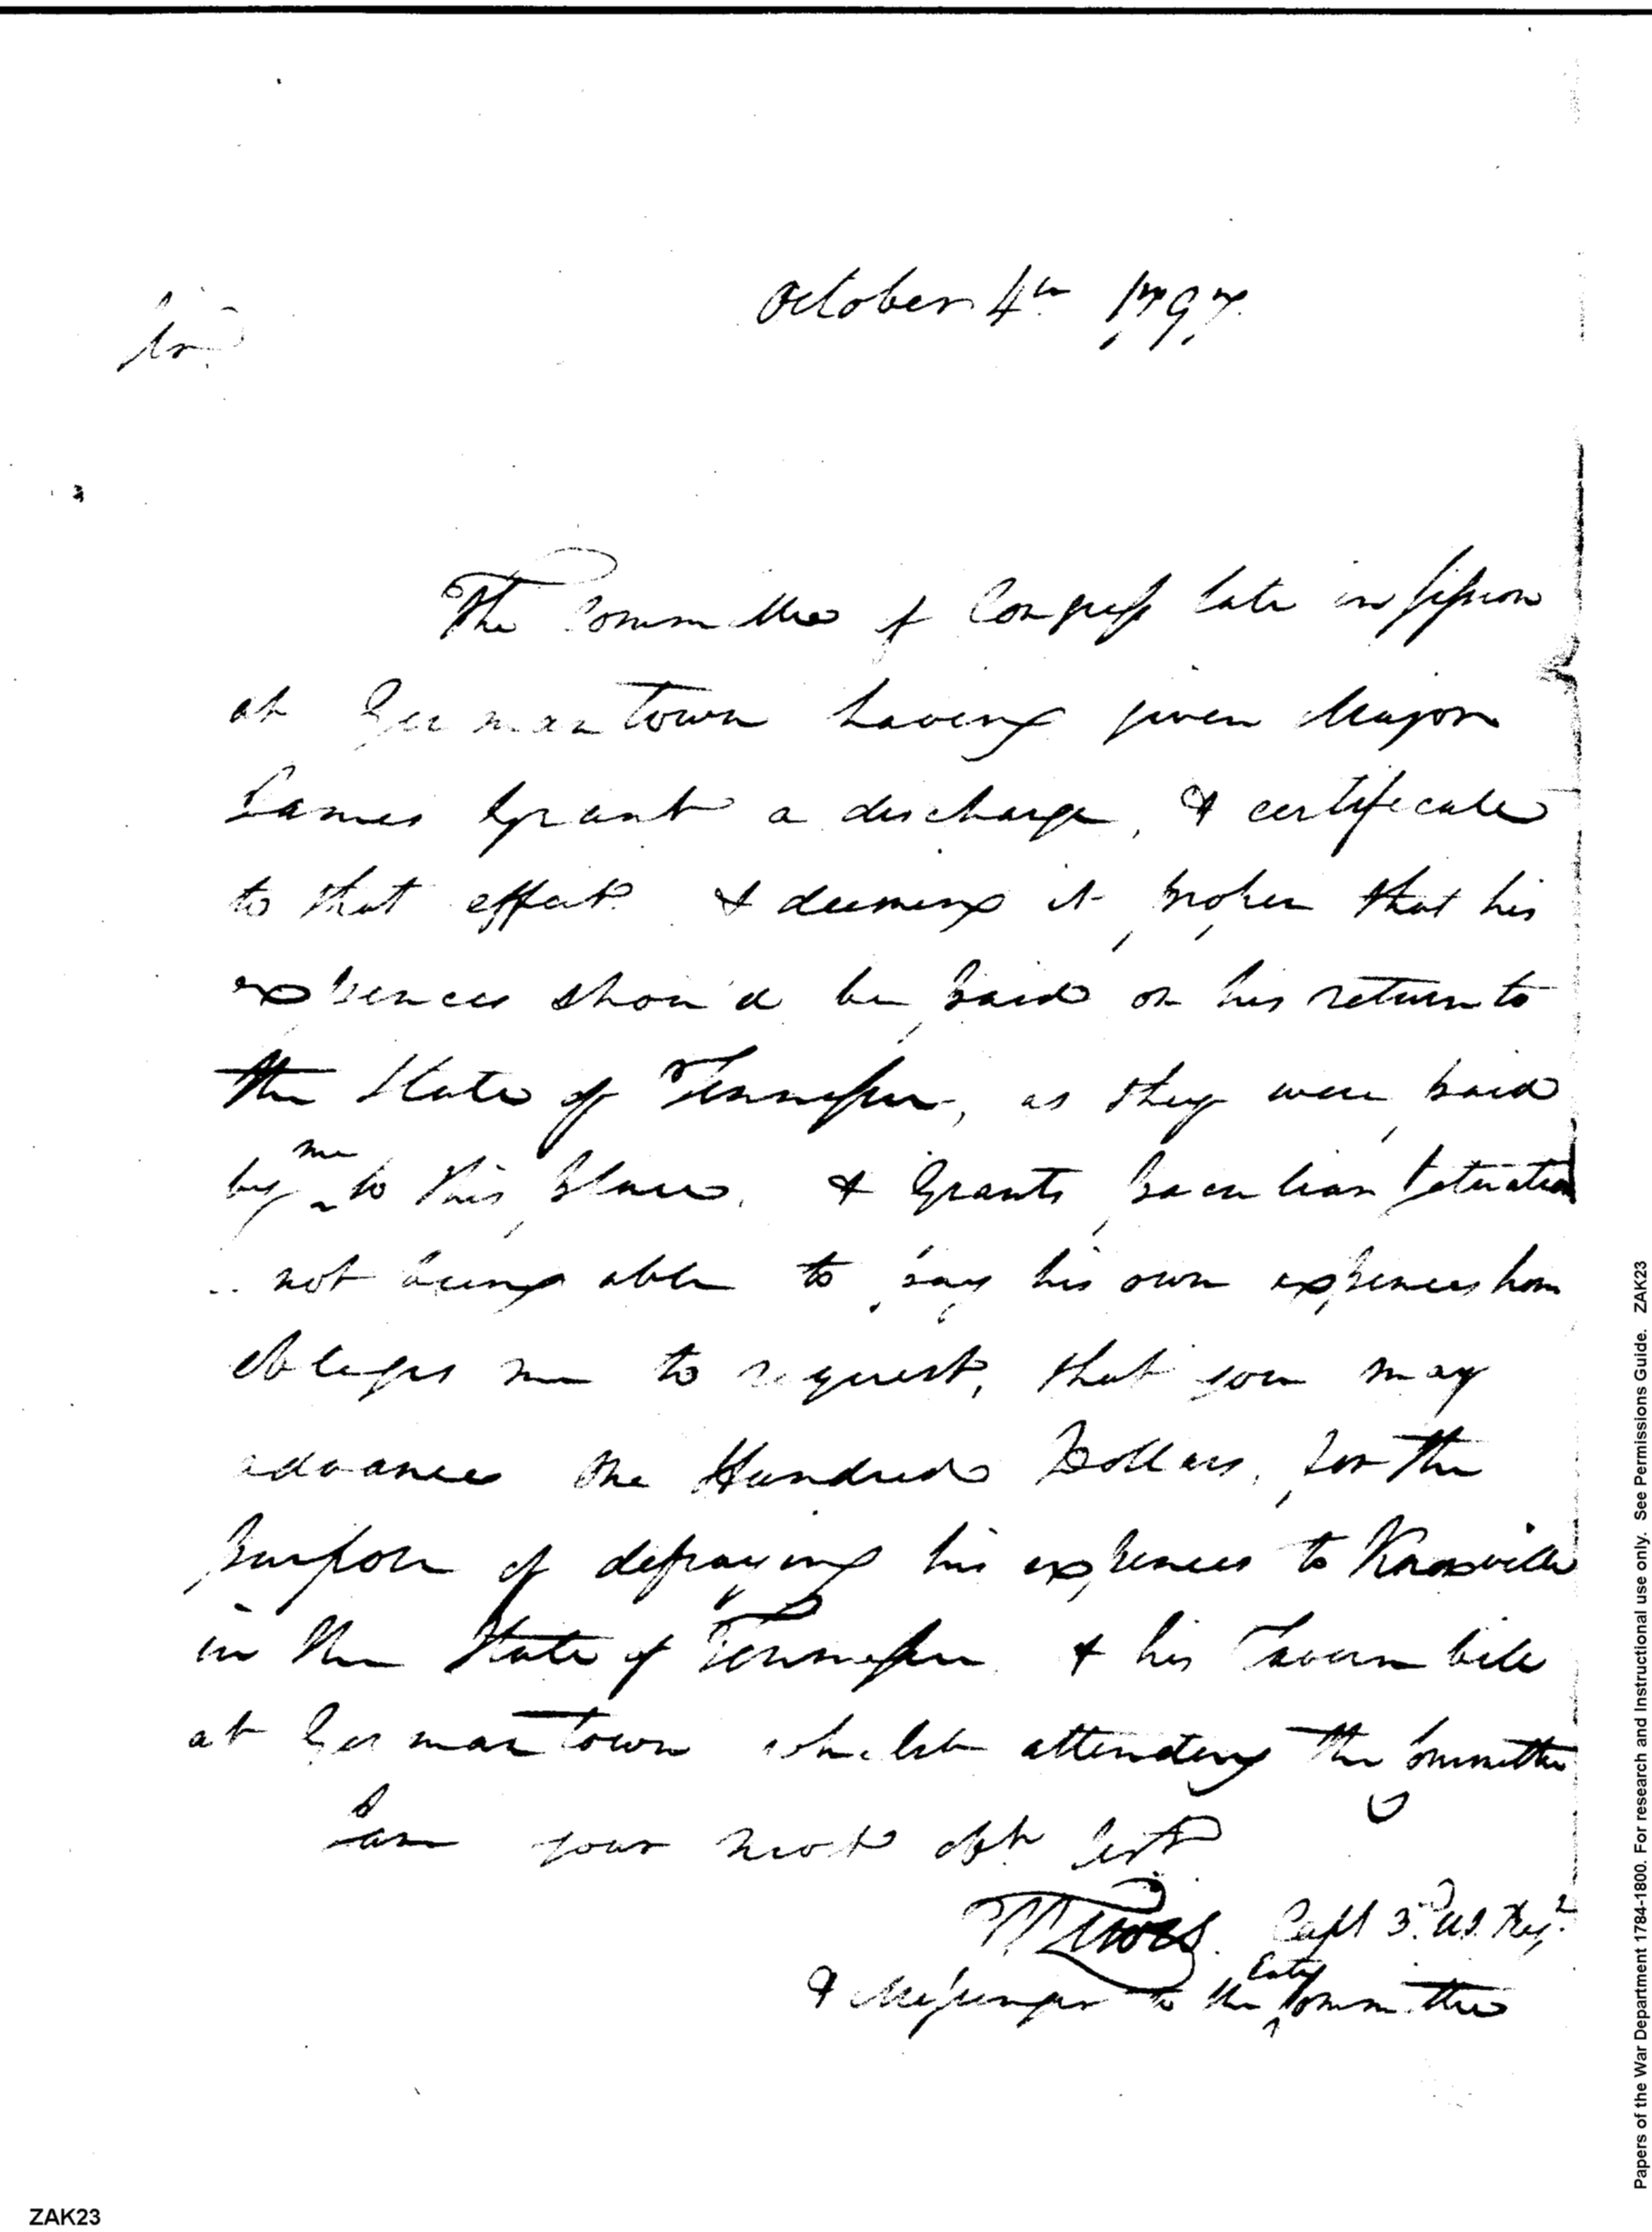 October 4th 1797.
Sir
The Committee of Congress late in session
at Germantown having given Major
James Grant a discharge, & certificate
to that effect & deeming it proper that his
expences shou'd be paid on his return to
the State of Tennessee, as they were paid
by me to this place, & Grants peculiar situation
not being able to pay his own expences home
obleges me to request, that you may
advance One Hundred Dollars, for the
purpose of defraying his expences to Knoxville
in the State of Tennessee & his Tavern bill
at Germantown whilst attending the Committee
I am your most obt Sert
Lewis Capt 3rd U.S. Regt
& Messenger to the Committee
ZAK23
Papers of the War Department 1784-1800. For research and Instructional use only. See Permissions Guide. ZAK23